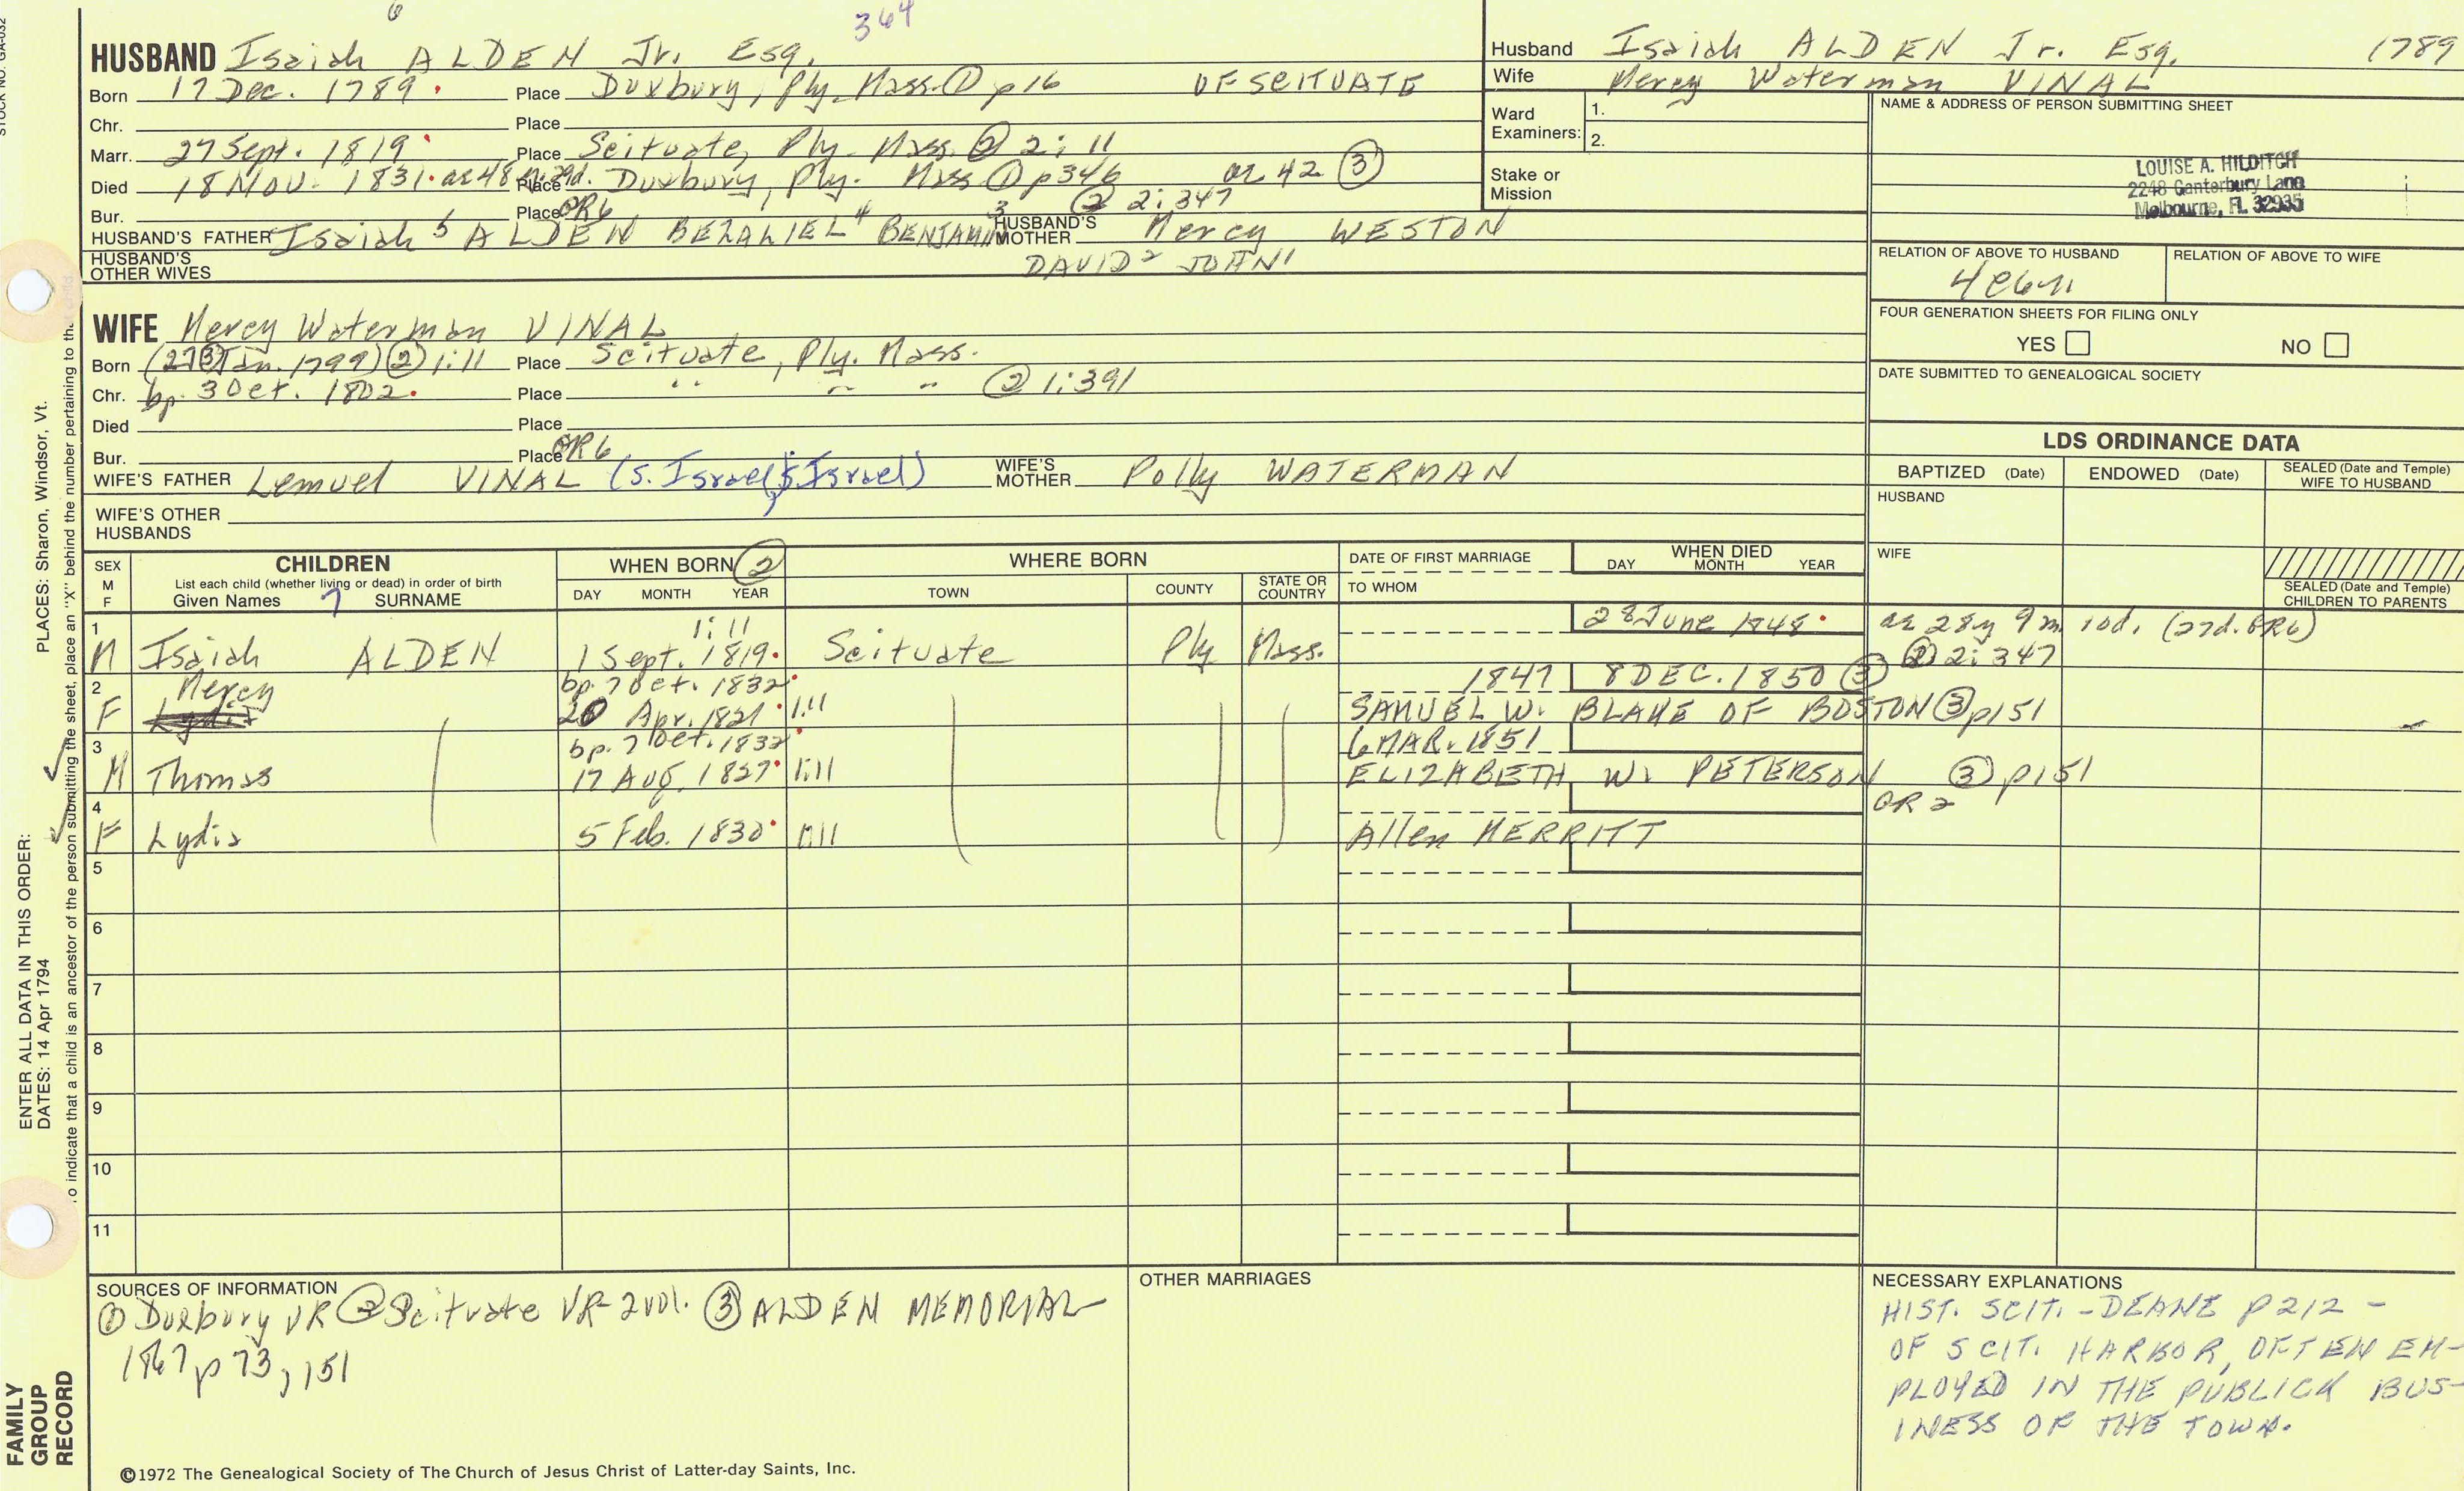 STOCK NO. GA-032
6
364
HUSBAND Isaiah ALDEN Jr. Esq.
Born 17 Dec. 1789. Place Duxbury, Ply. Mass. ① p16 OF SCITUATE
Chr. Place
Marr. 27 Sept. 1819 Place Scituate, Ply. Mass. ② 2: 11
Died 18 Nov. 1831. ae 48 29d. Place Duxbury, Ply. Mass ① p346 ae 42 ③
Bur. Place GR6 ② 2: 347
HUSBAND'S FATHER Isaiah 5 ALDEN BEZALIEL 4 BENJAMIN 3 HUSBAND'S MOTHER Mercy WESTON
HUSBAND'S OTHER WIVES DAVID 2 JOHN 1
Husband Isaiah ALDEN Jr. Esq. 1789
Wife Mercy Waterman VINAL
Ward Examiners: 1.
2.
Stake or Mission
NAME & ADDRESS OF PERSON SUBMITTING SHEET
LOUISE A. HILDITCH
2248 Canterbury Lane
Melbourne, FL 32935
RELATION OF ABOVE TO HUSBAND
RELATION OF ABOVE TO WIFE
FOUR GENERATION SHEETS FOR FILING ONLY
YES NO
DATE SUBMITTED TO GENEALOGICAL SOCIETY
WIFE Mercy Waterman VINAL
Born (27 ③ Jan. 1799) ② 1:11 Place Scituate, Ply. Mass.
Chr. bp. 3 Oct. 1802. Place " " " ② 1:391
Died Place
Bur. Place GR6
WIFE'S FATHER Lemuel VINAL (s. Israel, s Israel) WIFE'S MOTHER Polly WATERMAN
WIFE'S OTHER HUSBANDS
LDS ORDINANCE DATA
BAPTIZED (Date) ENDOWED (Date) SEALED (Date and Temple) WIFE TO HUSBAND
HUSBAND
WIFE
SEALED (Date and Temple) CHILDREN TO PARENTS
SEX M F
CHILDREN
List each child (whether living or dead) in order of birth
Given Names 7 SURNAME
WHEN BORN ②
DAY MONTH YEAR
WHERE BORN
TOWN COUNTY STATE OR COUNTRY
DATE OF FIRST MARRIAGE
TO WHOM
WHEN DIED
DAY MONTH YEAR
1 1:11 28 June 1848. ae 28y 9m 10d. (27d. GR6)
M Isaiah ALDEN 1 Sept. 1819. Scituate Ply Mass. ② 2: 347
2 Mercy bp. 7 Oct. 1832 1847 8 DEC. 1850 ③
F 20 Apr. 1821 1:11 SAMUEL W. BLAKE OF BOSTON ③ p151
3 bp. 7 Oct. 1832 6 MAR. 1851
M Thomas 17 Aug. 1827 1:11 ELIZABETH W. PETERSON ③ p151
4 OR 2
F Lydia 5 Feb. 1830 1:11 Allen MERRITT
5
6
7
8
9
10
11
SOURCES OF INFORMATION
① Duxbury VR ② Scituate VR 2 vol. ③ ALDEN MEMORIAL
1867 p 73, 151
OTHER MARRIAGES
NECESSARY EXPLANATIONS
HIST. SCIT. - DEANE P 212 -
OF SCIT. HARBOR, OFTEN EM-
PLOYED IN THE PUBLICK BUS-
INESS OF THE TOWN.
©1972 The Genealogical Society of The Church of Jesus Christ of Latter-day Saints, Inc.
FAMILY GROUP RECORD
ENTER ALL DATA IN THIS ORDER:
DATES: 14 Apr 1794
PLACES: Sharon, Windsor, Vt.
o indicate that a child is an ancestor of the person submitting the sheet, place an "X" behind the number pertaining to that child